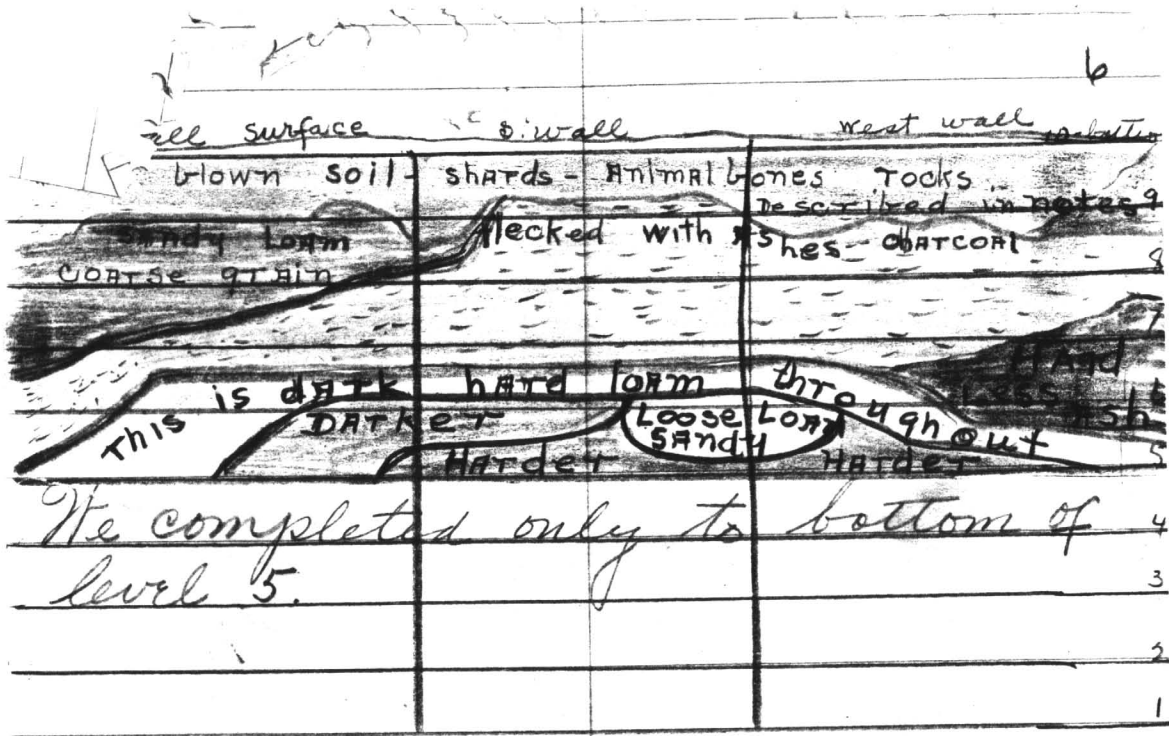 6
surface S. wall West wall
blown soil - shards - Animal bones rocks
Described in notes 9
Sandy Loam flecked with Ashes - charcoal
Coarse grain 8
7
Hard
This is dark hard loam throughout
Less 6
Darker Loose Loam Ash
Sandy
Harder Harder 5
We completed only to bottom of 4
level 5. 3
2
1